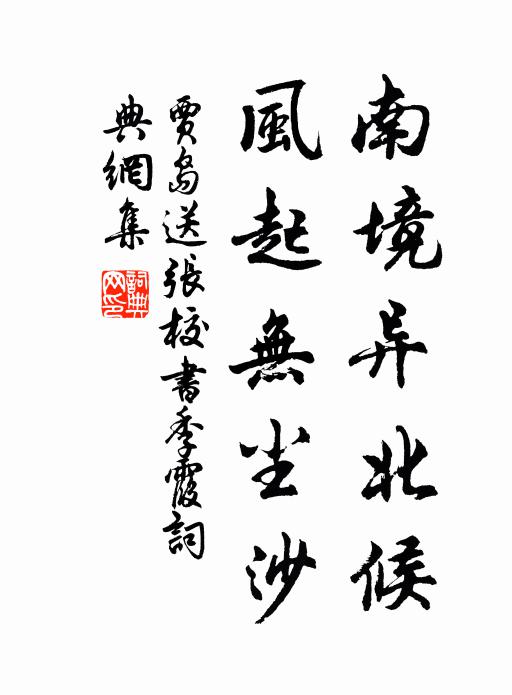 南境异北候
風起無尘沙
賈島送張校書季霞詞
典網集
詞典网印